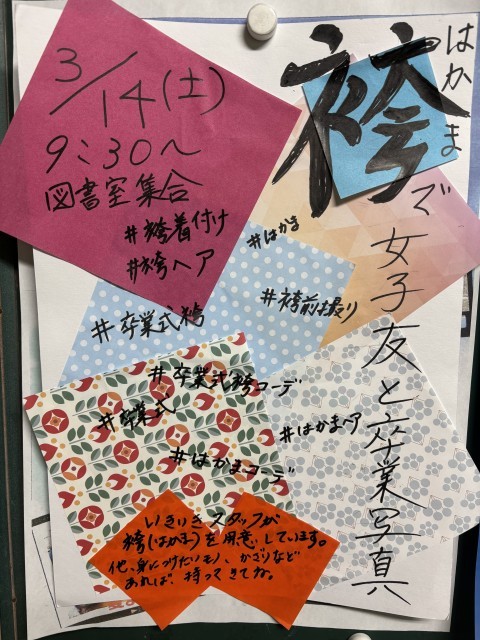 はかま
袴で女子友と卒業写真
3/14(土)
9:30〜
図書室集合
#袴着付け
#袴ヘア
#はかま
#袴前撮り
#卒業式袴
#卒業式袴コーデ
#卒業式
#はかまヘア
#はかまコーデ
いきいきスタッフが
袴(はかま)を用意しています。
他、身につけたいモノ、かざりなど
あれば、持ってきてね。